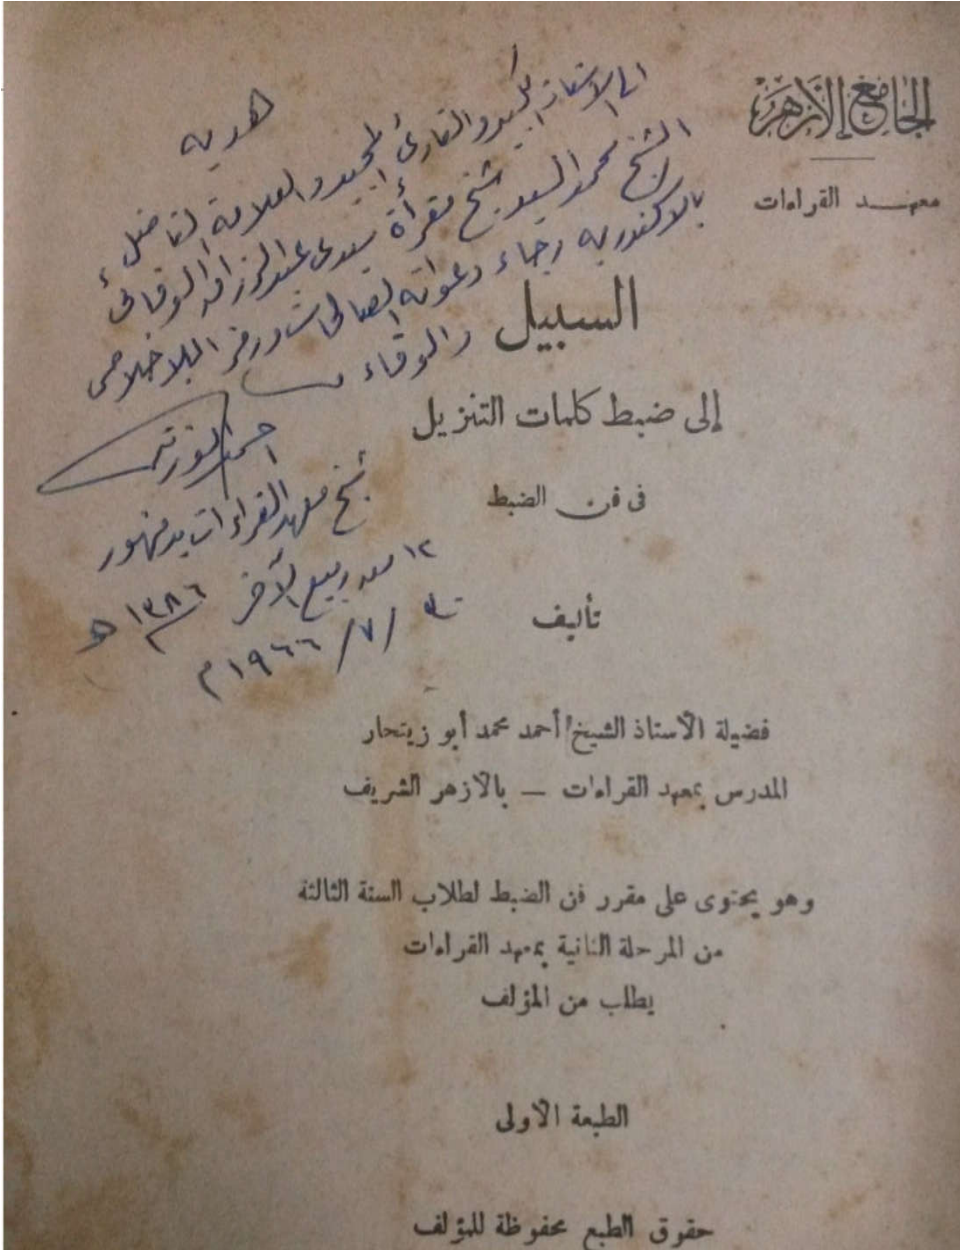 الجامع الأزهر
معهد القراءات
هديه
الى الاستاذ الكبير والقارئ المجيد والعلامة الفاضل
الشيخ محمد السيد شيخ مقرأة سيدى عبد الرزاق الوفائى
بالاسكندريه رجاء دعواته الصالحات ورمز الاخلاص
والوفاء
شيخ معهد القراءات بدمنهور
١٢ من ربيع الآخر ١٣٨٦ ه
/ ٧ / ١٩٦٦ م
السبيل
إلى ضبط كلمات التنزيل
فى فن الضبط
تأليف
فضيلة الأستاذ الشيخ / أحمد محمد أبو زيتحار
المدرس بمعهد القراءات — بالأزهر الشريف
وهو يحتوى على مقرر فن الضبط لطلاب السنة الثالثة
من المرحلة الثانية بمعهد القراءات
يطلب من المؤلف
الطبعة الأولى
حقوق الطبع محفوظة للمؤلف